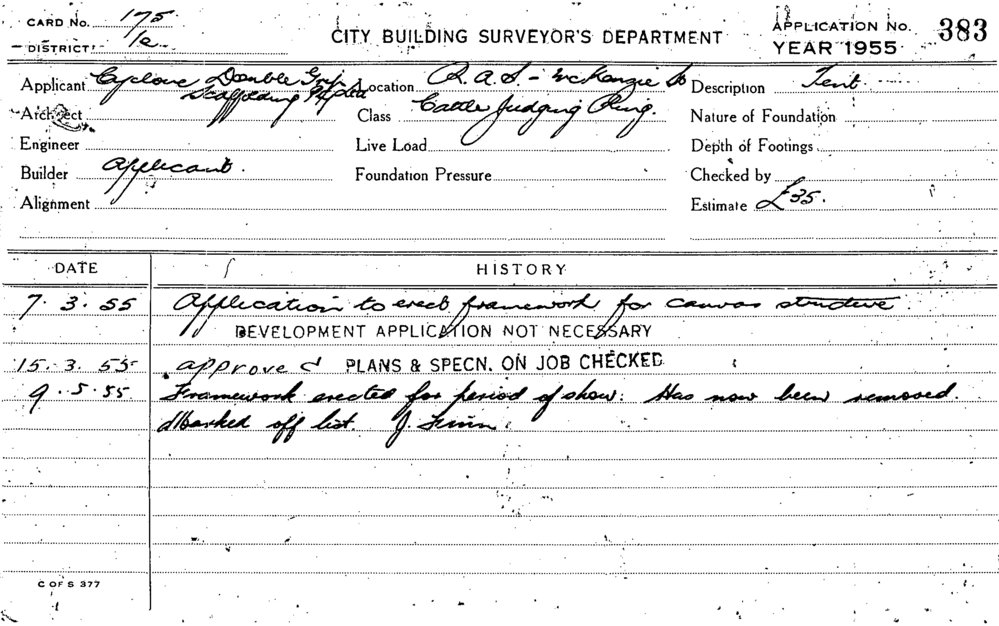 CARD No. 175
DISTRICT 1e
CITY BUILDING SURVEYOR'S DEPARTMENT
APPLICATION No. 383
YEAR 1955
Applicant Cyclone Double Grip Scaffolding P/L
Location R.A.S - McKenzie
Description Tent
Architect
Class Cattle Judging Ring.
Nature of Foundation
Engineer
Live Load
Depth of Footings
Builder Applicant.
Foundation Pressure
Checked by
Alignment
Estimate £35.
DATE HISTORY
7.3.55 Application to erect framework for canvas structure.
DEVELOPMENT APPLICATION NOT NECESSARY
15.3.55 approved PLANS & SPECN. ON JOB CHECKED
9.5.55 Framework erected for period of show. Has now been removed.
Marked off list. J.
C OF S 377